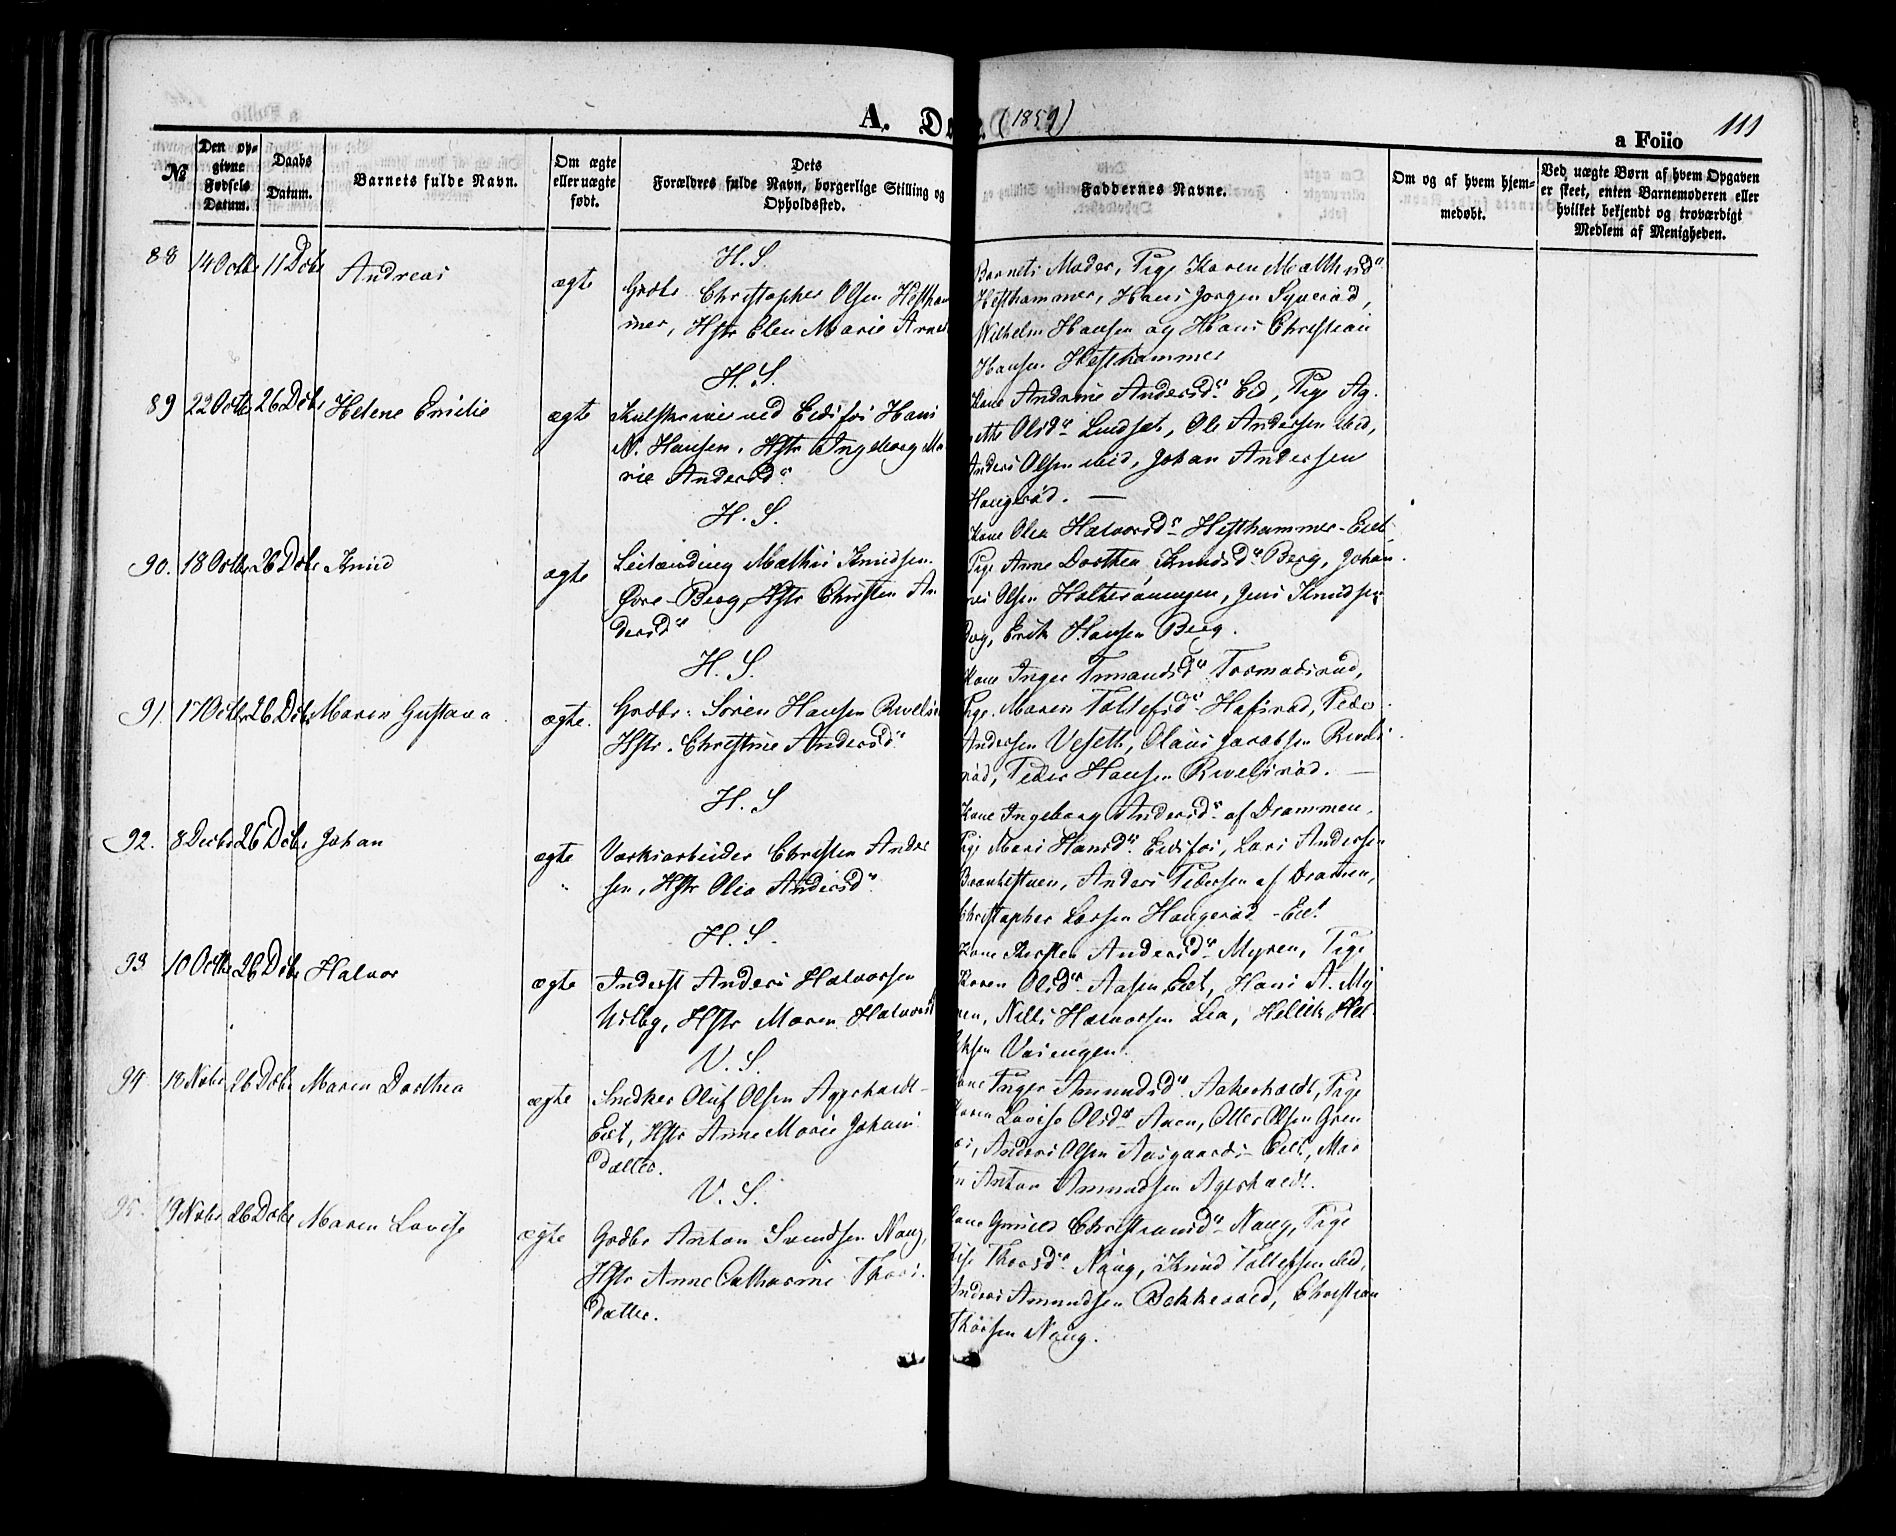 A. D (1859)
a Foiio 111
№
Den op-
givne
Fødsels
Datum.
Daabs
Datum.
Barnets fulde Navn.
Om ægte
eller uægte
født.
Dets
Forældres fulde Navn, borgerlige Stilling og
Opholdssted.
Faddernes Navne.
Om og af hvem hjem-
medøbt.
Ved uægte Børn af hvem Opgaven
er skeet, enten Barnemoderen eller
hvilket bekjendt og troværdigt
Medlem af Menigheden.
H. S.
88 14 Octbr 11 Dcbr Andreas ægte
Grdbr Christopher Olsen Hestham
mer, Hstr Elen Marie Arne
Barnets Moder, Pige Karen Mathisd.
Hesthammer, Hans Jørgen
Wilhelm Hansen og Hans Christian
Hansen Hesthammer
H. S.
89 22 Octbr 26 Dcbr Helene Emilie ægte
ved Eidsfos Hans
N. Hansen, Hstr Ingeborg Ma
rie Andersd.
Kone Andrine Andersd. Eid, Pige Ag.
nethe Olsd. Lindset, Ole Andersen ibid,
Anders Olsen ibid, Johan Andersen
Haugerød. —
H. S.
90. 18 Octbr 26 Dcbr Knud ægte
Leilænding Mathis Knudsen
Øvre-Berg, Hstr Christen An
dersd.
Kone Olea Halvorsd. Hesthammer-Eiet
Pige Anne Dorthea Knudsd. Berg, Johan
nes Olsen Holtersøningen, Jens Knudsen
Berg, Erik Hansen Berg.
H. S.
91. 17 Octbr 26 Dcbr Maren Gustava ægte.
Grdbr. Søren Hansen Revelsrø
Hstr. Christine Andersd.
Kone Inger Tormodsrud,
Pige Maren Tollefsd. Hafsrød, Peder
Andersen Veseth, Olaus Jacobsen Revels
rød, Peder Hansen Revelsrød. —
H. S
92. 8 Decbr 26 Dcbr Johan ægte
Værksarbeider Christen Ander
sen, Hstr Olia Andersd.
Kone Ingeborg Andersd. af Drammen,
Pige Mari Hansd. Eidsfos, Lars Andersen
Anders Pedersen af Dramen,
Christopher Larsen Haugerød-Eiet
H. S.
93 10 Octbr 26 Dcbr Halvor ægte
Inderst Anders Halvorsen
Hstr Maren Halvorsd
Kone Kirsten Andersd. Myren, Pige
Karen Olsd. Aasen Eiet, Hans A. My
ren, Nills Halvorsen Lia, Hellik Hel
liksen
V. S.
94. 18 Nobr 26 Dcbr Maren Dorthea ægte
Snedker Oluf Olsen Agerholdt-
Eiet, Hstr Anne Marie Johans
Datter.
Kone Inger Amundsd. Aakerholdt, Pige
Karen Lovise Olsd. Otter Olsen Gren
Anders Olsen Aasgaards-Eiet, Mar
Anton Amundsen Agerholdt.
V. S.
95. 19 Nobr 26 Dcbr Maren Lovise ægte
Grdbr Anton Svendsen Naug,
Hstr Anne Cathrine Thors
Datter.
Kone Gunild Christiansd. Naug, Pige
Thorsd. Naug, Knud Tollefsen ibid,
Anders Amundsen Bekkevold, Christian
Thorsen Naug.